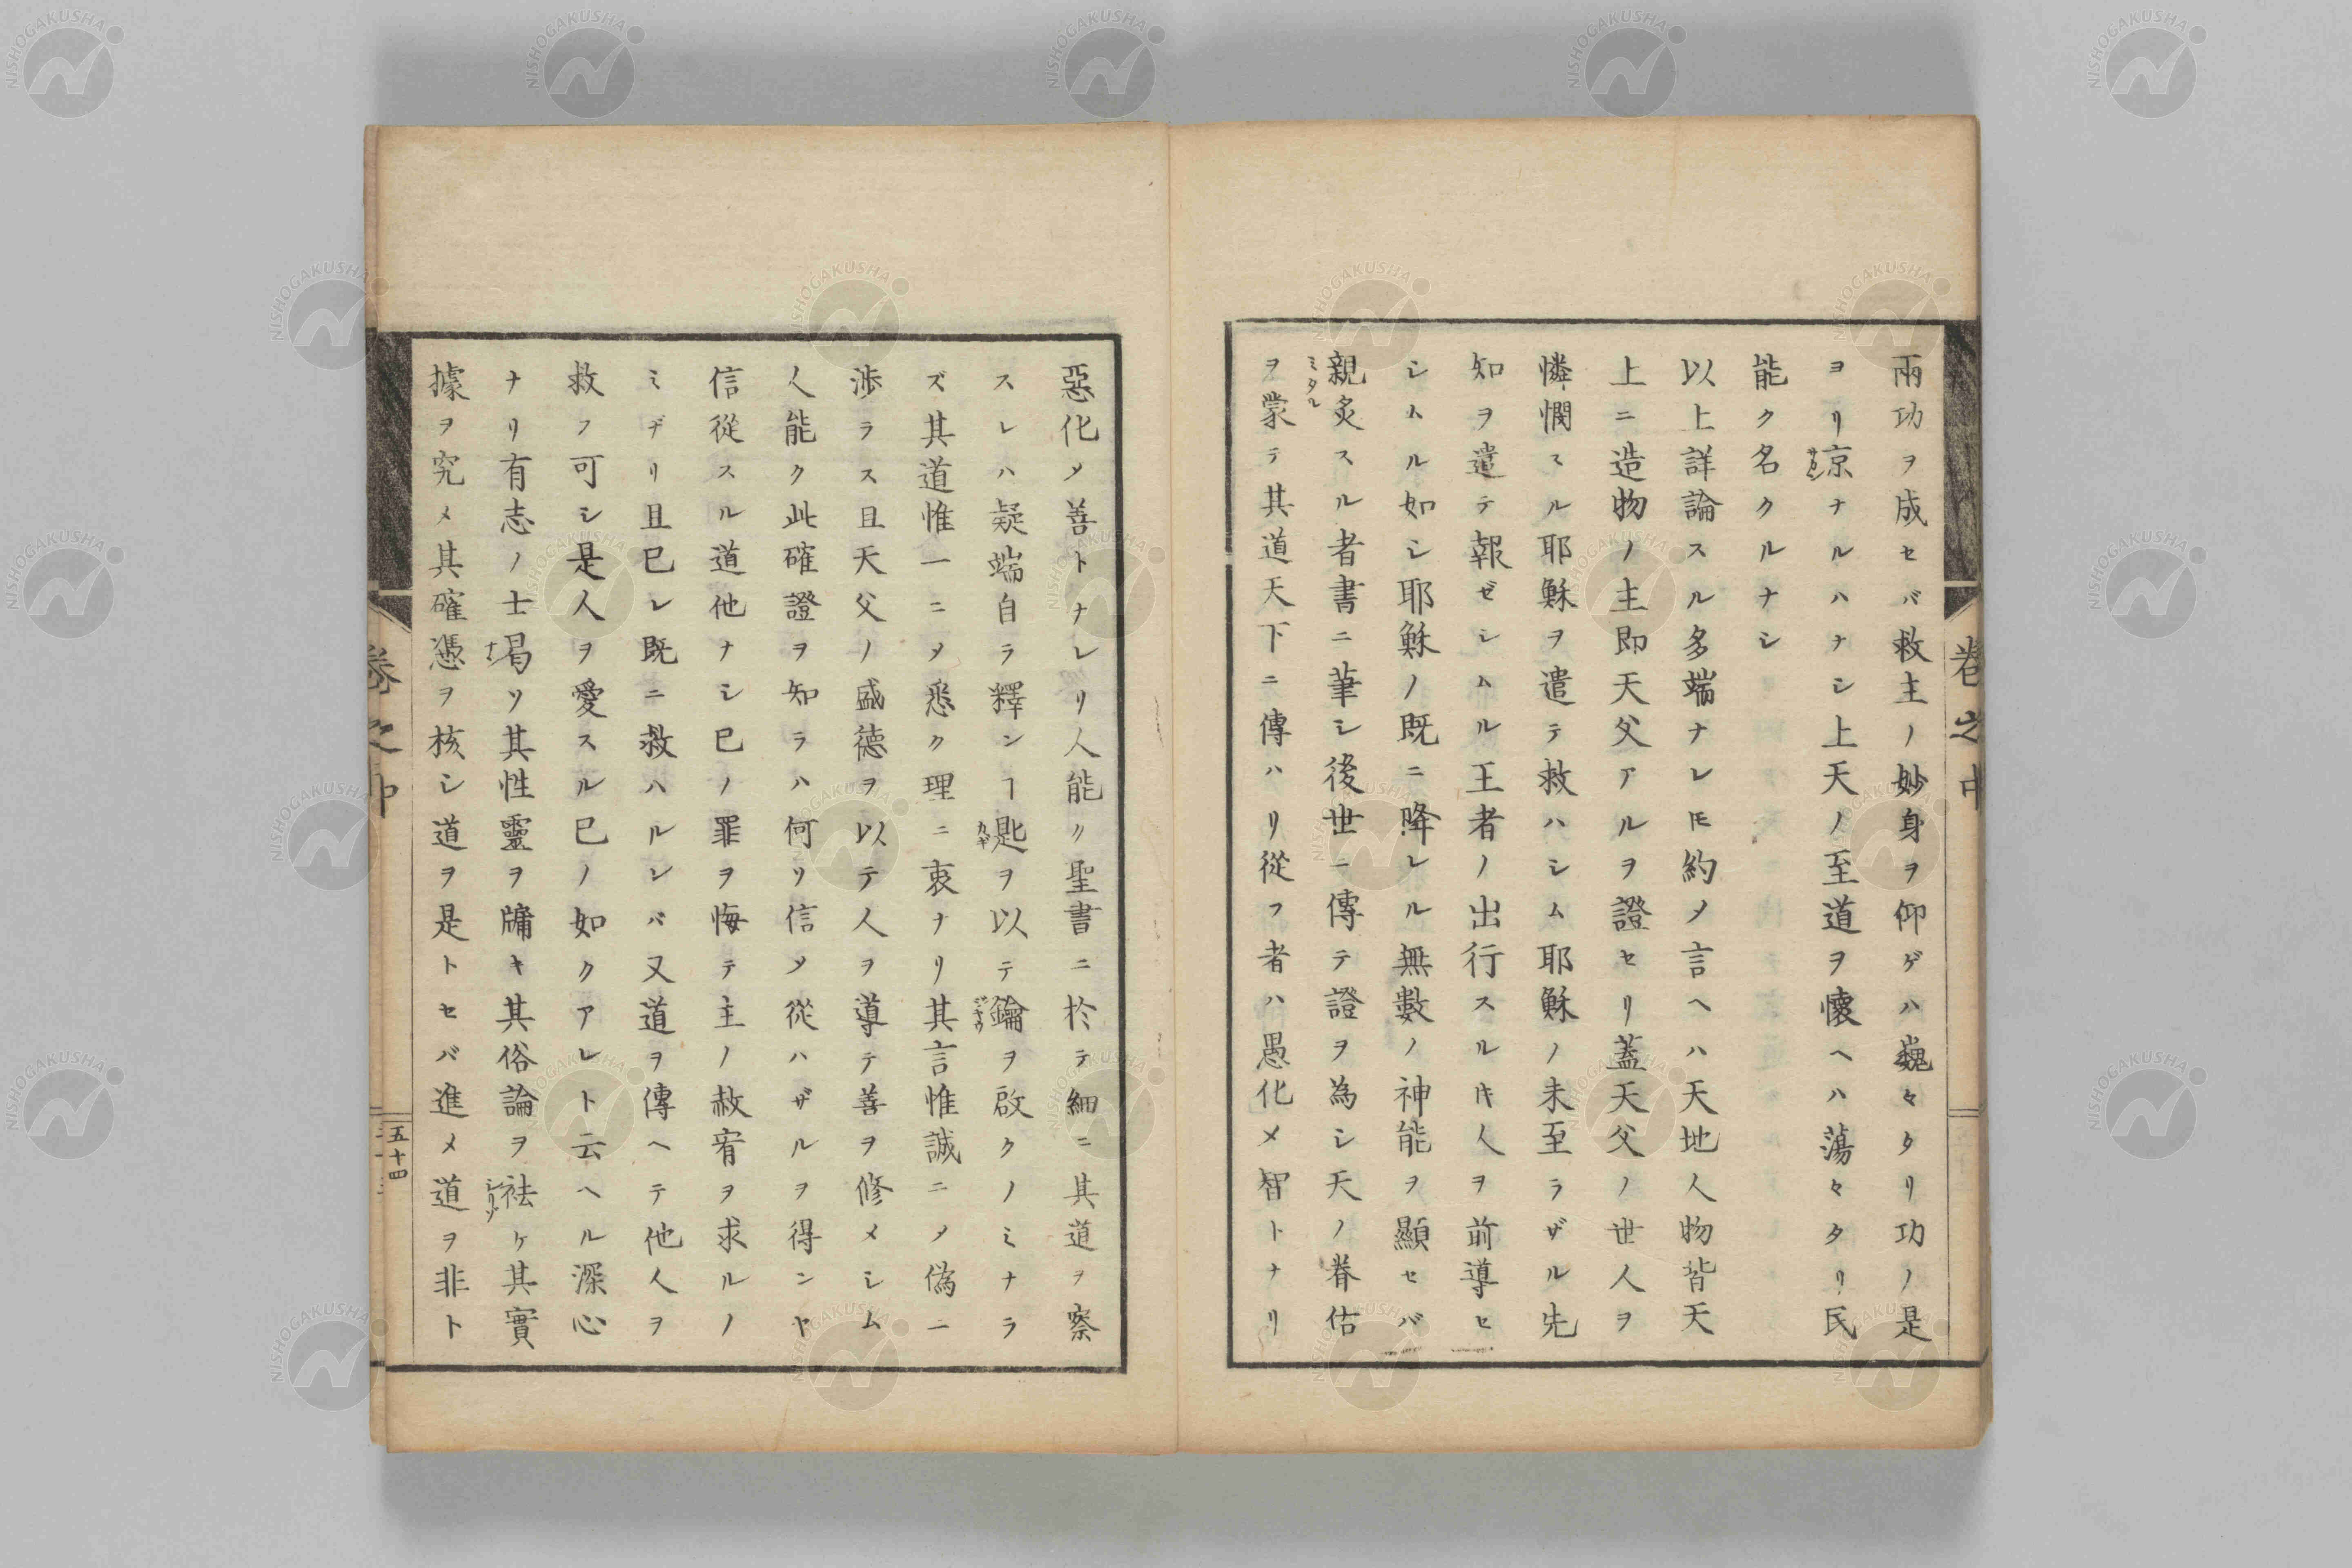 兩功ヲ成セバ救主ノ妙身ヲ仰ゲハ巍々タリ功ノ是
ヨリ京ナルハナシ上天ノ至道ヲ懷ヘハ蕩々タリ民
能ク名クルナシ
以上詳論スル多端ナレ𪜈約ノ言ヘハ天地人物皆天
上ニ造物ノ主即天父アルヲ證セリ蓋天父ノ世人ヲ
憐憫スル耶穌ヲ遣テ救ハシム耶穌ノ未至ラザル先
知ヲ遣テ報ゼシムル王者ノ出行スル𪜈人ヲ前導セ
シムル如シ耶穌ノ既ニ降レル無數ノ神能ヲ顯セバ
親炙スル者書ニ筆シ後世ニ傳テ證ヲ為シ天ノ眷估
ミタル
ヲ蒙テ其道天下ニ傳ハリ從フ者ハ愚化メ智トナリ
惡化メ善トナレリ人能ク聖書ニ於テ細ニ其道ヲ察
スレハ疑端自ラ釋ンヿ匙ヲ以テ鑰ヲ啟クノミナラ
カギ
ズ其道惟一ニメ悉ク理ニ衷ナリ其言惟誠ニメ偽ニ
渉ラス且天父ノ盛德ヲ以テ人ヲ導テ善ヲ修メシム
人能ク此確證ヲ知ラハ何リ信メ從ハザルヲ得ンヤ
信從スル道他ナシ已ノ罪ヲ悔テ主ノ赦宥ヲ求ルノ
ミヂリ且已レ既ニ救ハルレバ又道ヲ傳ヘテ他人ヲ
救フ可シ是人ヲ愛スル已ノ如クアレト云ヘル深心
ナリ有志ノ士曷ソ其性靈ヲ牖キ其俗論ヲ祛ケ其實
據ヲ究メ其確憑ヲ核シ道ヲ是トセバ進メ道ヲ非ト
卷之中
五十四
卷之中
NISHOGAKUSHA